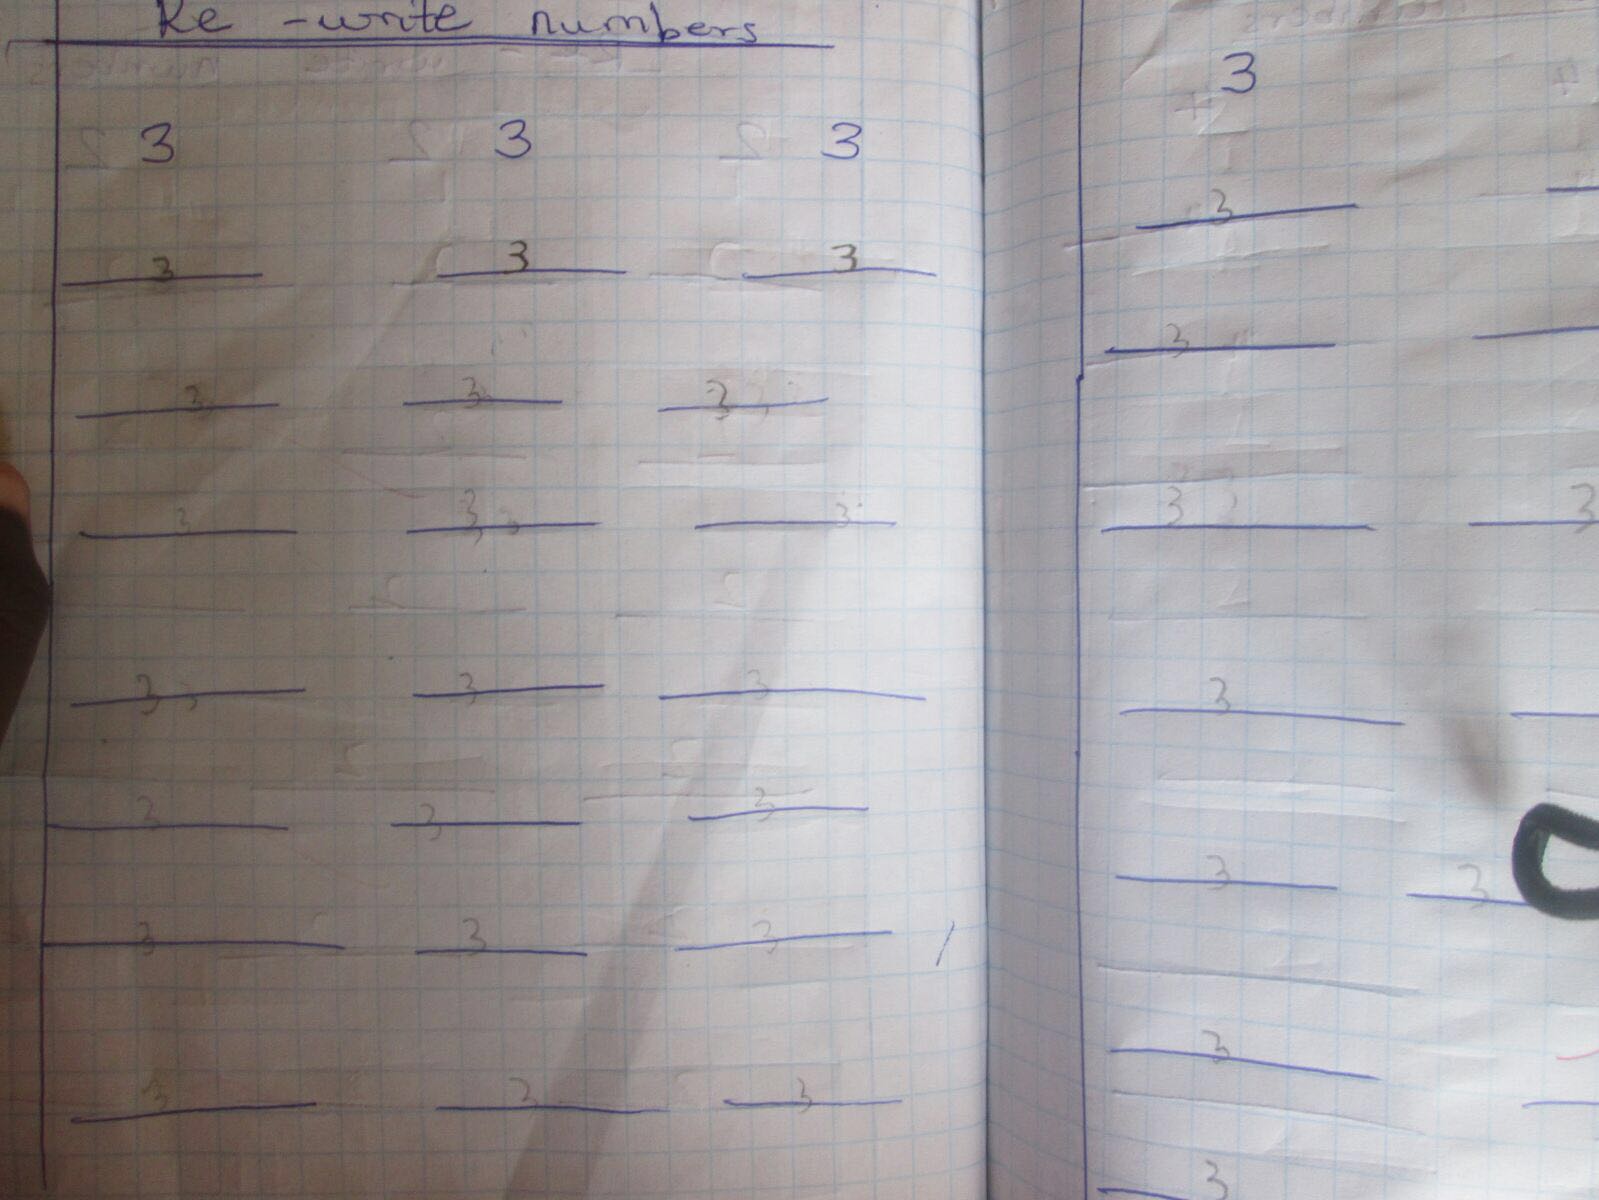 Re -write numbers
3 3 3
3 3 3
3 3 3
3 3 3 3
3 3 3 3
3 3 3
3 3 3
3 3 3
3
3
3
3 3
3
3 3
3
3